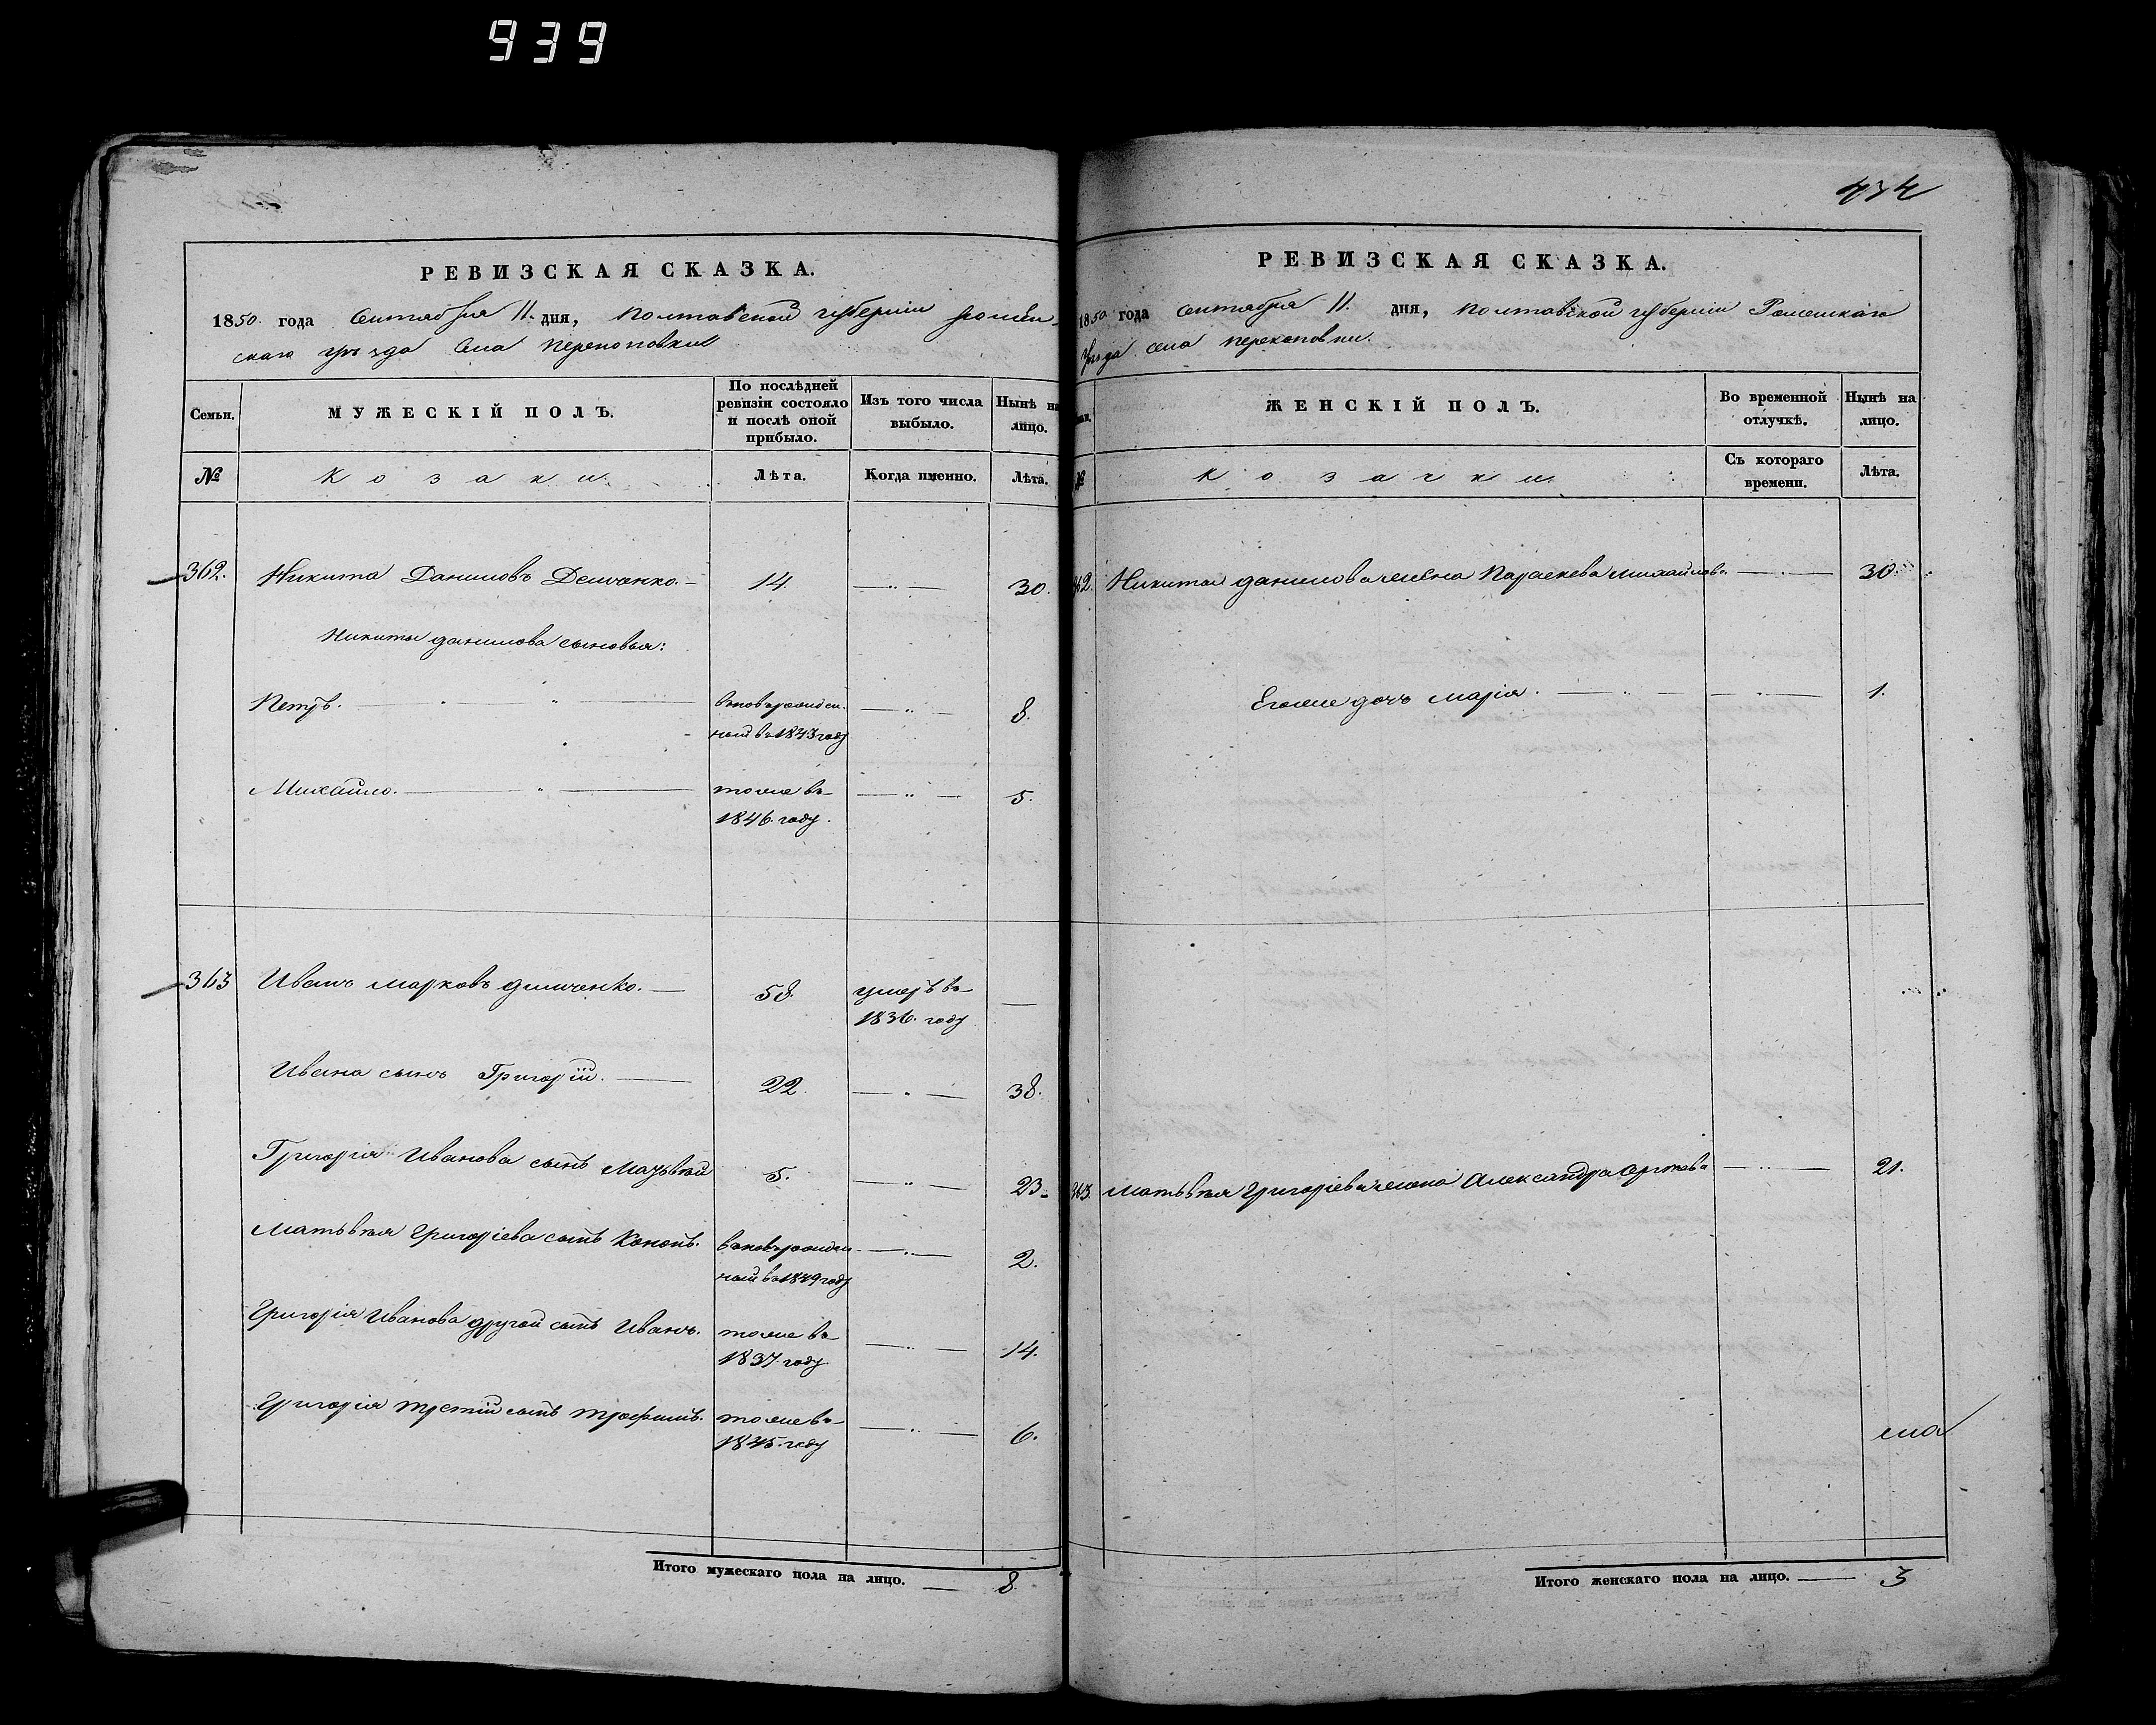 939
434
РЕВИЗСКАЯ СКАЗКА.
1850. года Сентября 11. дня, Полтавской губернии Ромен-
скаго уѣзда Села Перекоповки
Семьи.
МУЖЕСКІЙ ПОЛЪ.
По послѣдней ревизіи состояло и послѣ оной прибыло.
Изъ того числа выбыло.
Нынѣ на лицо.
№
Козаки.
Лѣта.
Когда именно.
Лѣта.
362. Никита Даниловъ Демченко. 14 30.
Никиты данилова сыновья:
Петръ. вновьрожден- 8.
ной въ 1843 году
Михайло. тоже въ 5.
1846. году.
363 Иванъ Марковъ димченко. 58. умеръ въ
1836. году
Ивана сынъ Григорій. 22. 38.
Григорія Иванова сынъ Матьвѣй 5. 23.
Матьвѣя Григоріева сынъ Кононъ. вновьрожден- 2.
ной въ 1849 году
Григорія Иванова другой сынъ Иванъ. тоже въ 14.
1837. году.
Григорія третій сынъ трофимъ. тоже въ 6.
1845. году
Итого мужескаго пола на лицо. 8.
РЕВИЗСКАЯ СКАЗКА.
1850 года Сентября 11. дня, Полтавской губерніи Роменскаго
уѣзда села перекоповки.
ЖЕНСКІЙ ПОЛЪ.
Во временной отлучкѣ.
Нынѣ на лицо.
№
Козачки.
Съ котораго времени.
Лѣта.
362. Никиты данилова жена Параскева михайлова 30.
Егоже дочь Марія. 1.
363. Матьвѣя григоріева жена Александра 21.
Итого женскаго пола на лицо. 3